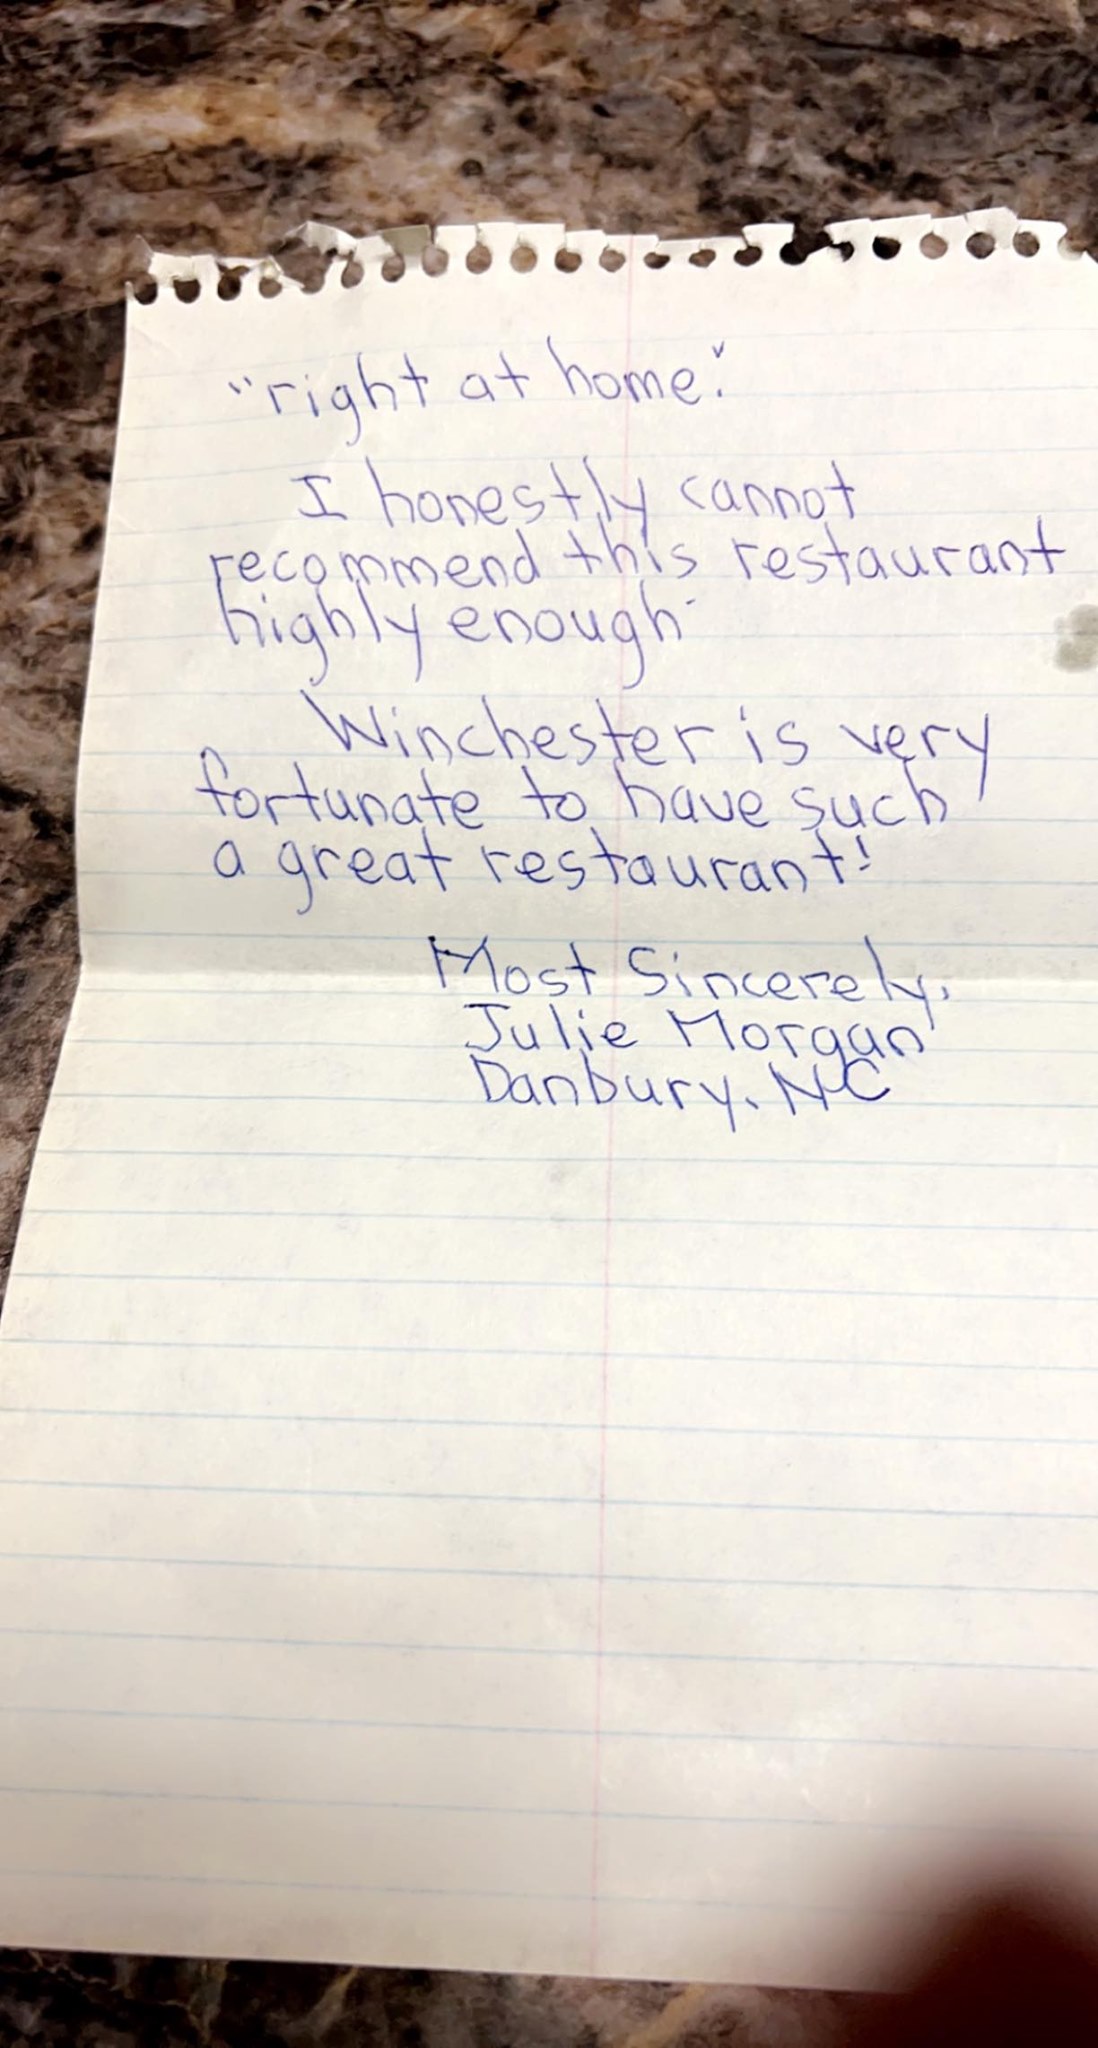 "right at home."
I honestly cannot
recommend this restaurant
highly enough.
Winchester is very
fortunate to have such
a great restaurant!
Most Sincerely,
Julie Morgan
Danbury, NC